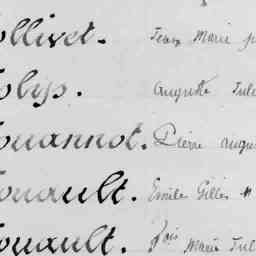 Jollivet. Jean Marie
Jolys. Auguste Jule
Jouannot. Pierre Augu
Jouault. Emile Gilles M
Jouault. fois Marie Jul